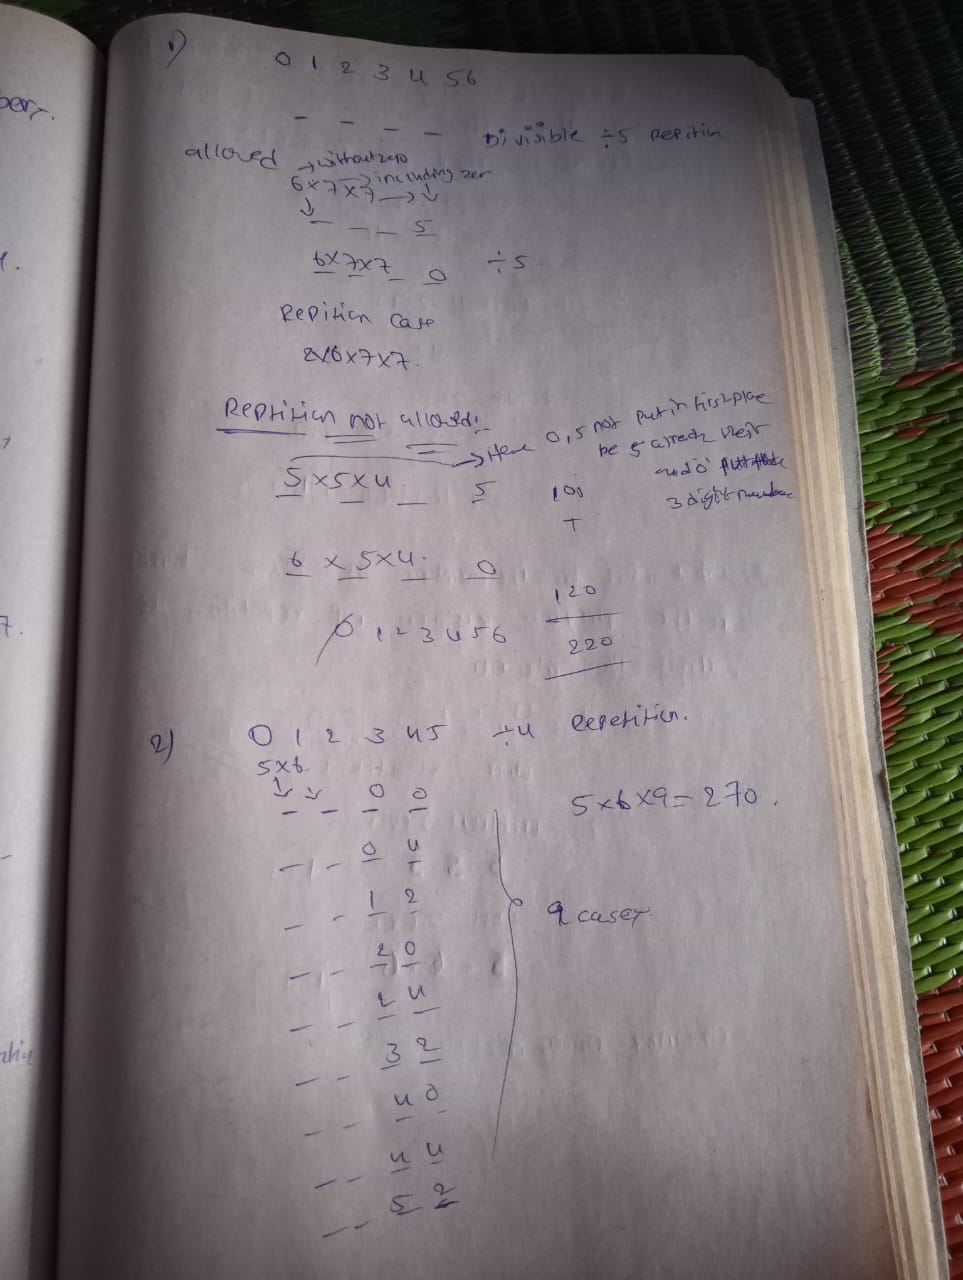 1)
0 1 2 3 4 5 6
_ _ _ _ Divisible ÷5 repitin
allowed → without zero
6×7×7 → including zer
_ _ _ 5
6×7×7 0 ÷5
Repition case
2×6×7×7.
Reptition not allowed:-
→ Here 0,5 not put in first place
5×5×4 5
be 5 already
and 0
3 digit number
100
+
6 × 5×4. 0
120
0 1 2 3 4 5 6
220
2) 0 1 2 3 4 5 ÷4 Repetition.
5×6.
_ _ 0 0
5×6×9=270.
_ _ 0 4
_ _ 1 2
9 cases
_ _ 2 0
_ _ 2 4
_ _ 3 2
_ _ 4 0
_ _ 4 4
_ _ 5 2